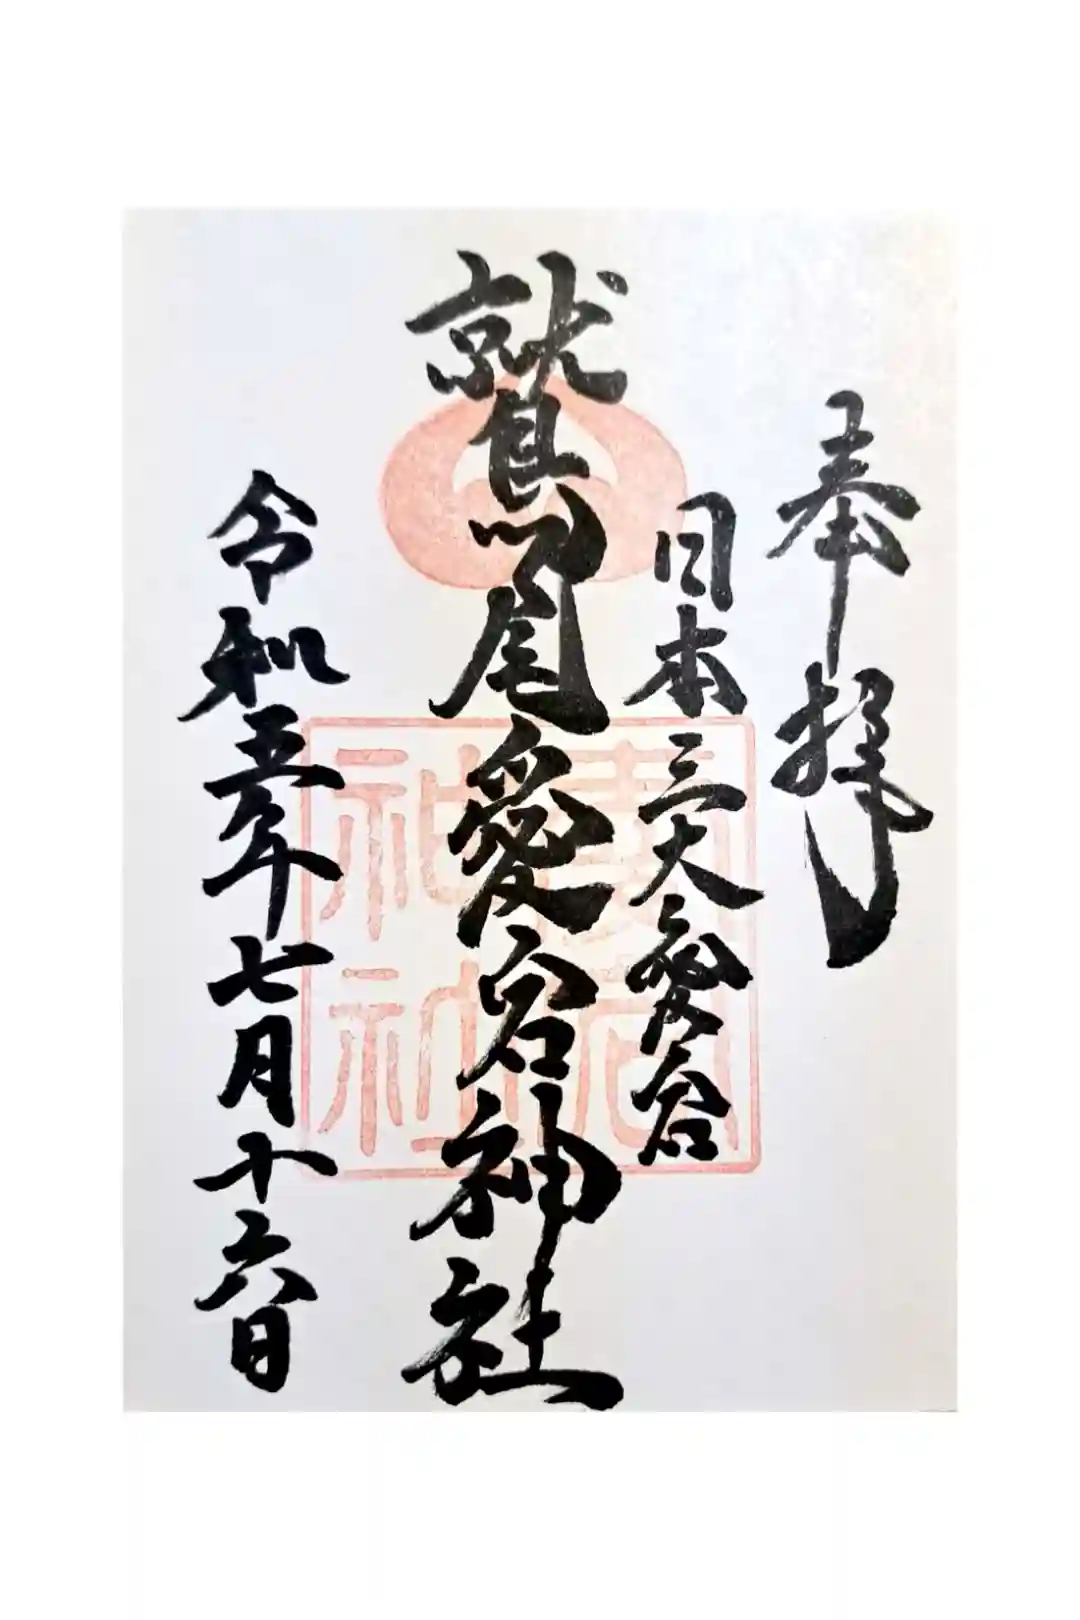 奉拝
日本三大愛宕
鷲尾愛宕神社
令和五年七月十六日
愛宕
神社